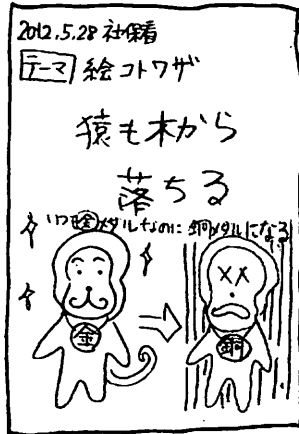 2012.5.28 社保着
テーマ 絵コトワザ
猿も木から
落ちる
いつも金メダルなのに銅メダルになる
金
銅